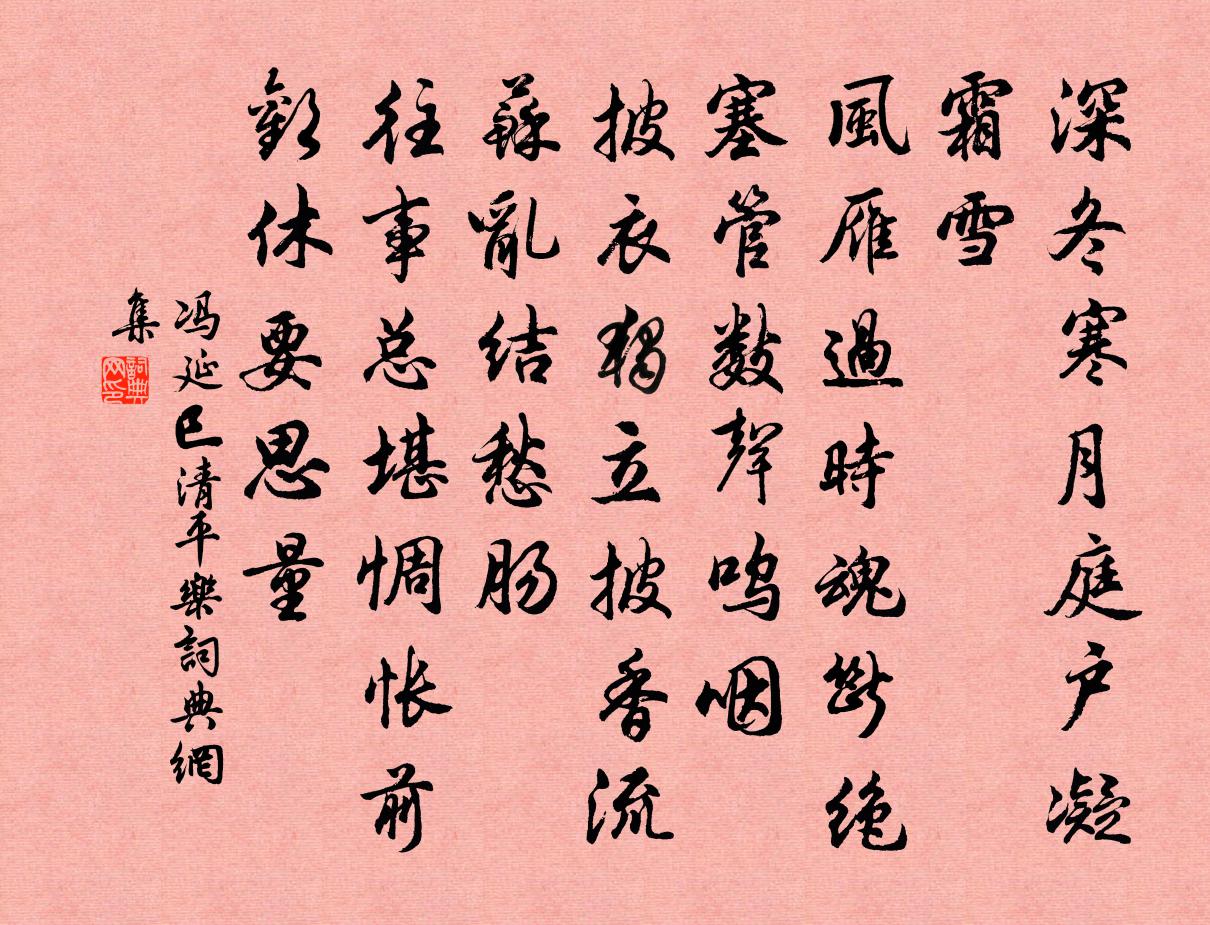 深冬寒月庭户凝
霜雪
風雁過時魂斷絶
塞管數聲呜咽
披衣獨立披香流
蘇亂结愁肠
往事总堪惆怅前
歡休要思量
冯延巳清平樂詞典網
集
詞典网印